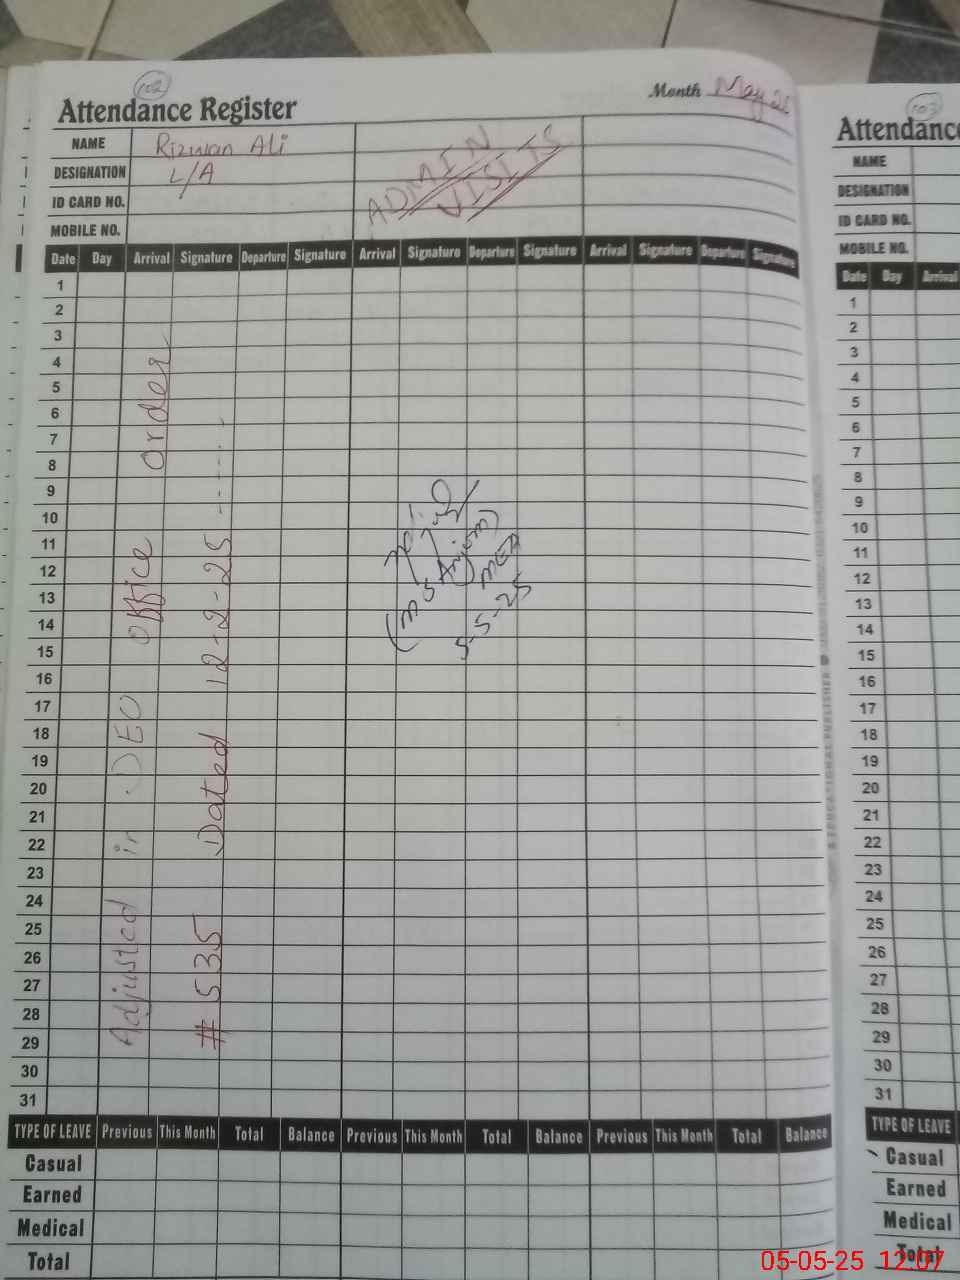 102
Attendance Register
Month May 25
NAME Rizwan Ali
DESIGNATION L/A
ID CARD NO.
MOBILE NO.
ADMIN
VISITS
Date Day Arrival Signature Departure Signature Arrival Signature Departure Signature Arrival Signature Departure Signature
1
2
3
4
5
6
7
8
9
10
11
12
13
14
15
16
17
18
19
20
21
22
23
24
25
26
27
28
29
30
31
Adjusted in DEO office order
# 535 Dated 12-2-25 ------
(M S Anjum)
MEA
5-5-25
TYPE OF LEAVE Previous This Month Total Balance Previous This Month Total Balance Previous This Month Total Balance
Casual
Earned
Medical
Total
103
Attendance
NAME
DESIGNATION
ID CARD NO.
MOBILE NO.
Date Day Arrival
1
2
3
4
5
6
7
8
9
10
11
12
13
14
15
16
17
18
19
20
21
22
23
24
25
26
27
28
29
30
31
TYPE OF LEAVE
Casual
Earned
Medical
Total
05-05-25 12:07